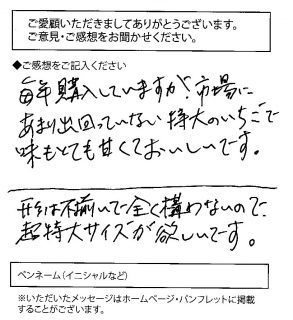 ご愛顧いただきましてありがとうございます。
ご意見・ご感想をお聞かせください。
◆ご感想をご記入ください
毎年購入していますが、市場に
あまり出回っていない特大のいちごで
味もとても甘くておいしいです。
形は不揃いで全く構わないので
超特大サイズが欲しいです。
ペンネーム（イニシャルなど）
※いただいたメッセージはホームページ・パンフレットに掲載
することがございます。